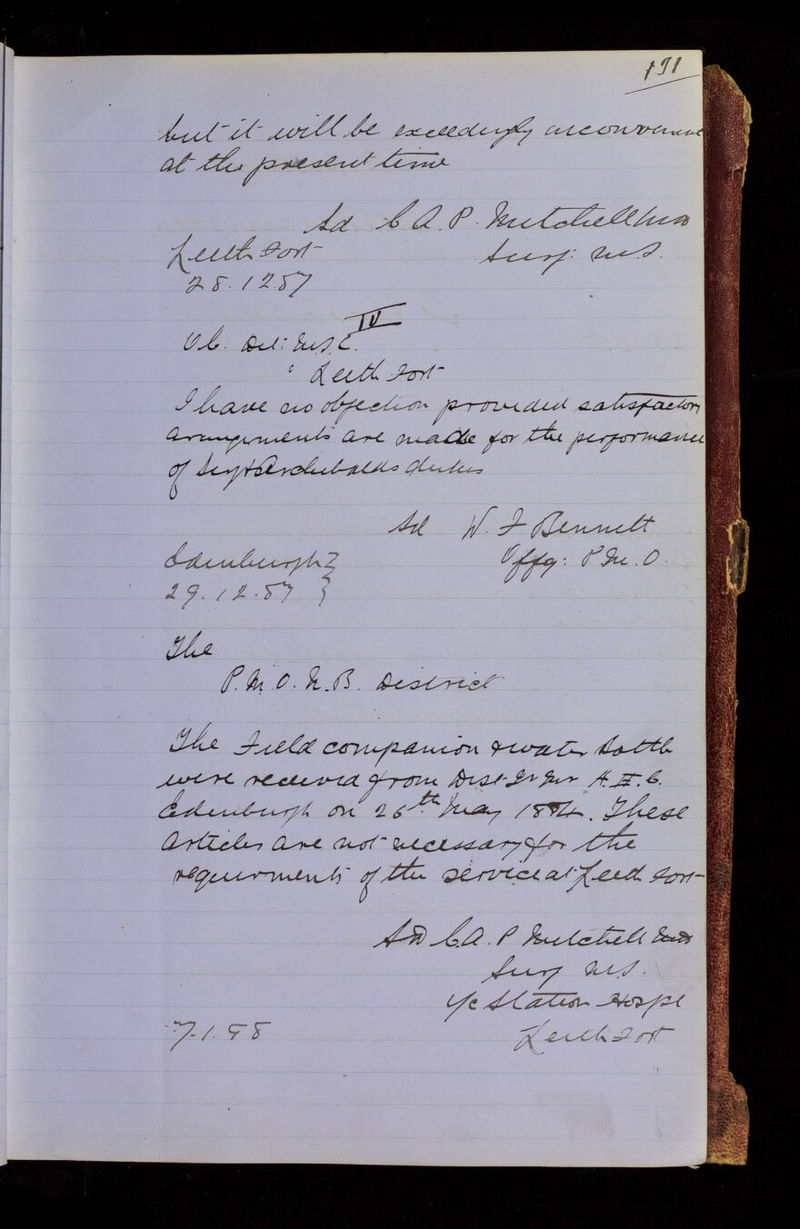 191
but it will be exceedingly inconvenient
at the present time
Sd C A. P. Mitchell MB
Leith Fort Surg: M.S.
28.12 87
IV
O C. Det: M.S.C.
Leith Fort
I have no objection provided satisfactory
arangements are made for the performance
of Sergt Archibalds duties
Sd W. F Bennett
Edinburgh } Offg: P.M.O.
29.12.87 }
The
P.M.O. N.B. District
The Field companion & water bottle
were received from Dist
Edinburgh on 26th May 1884. These
articles are not necessary for the
requirments of the service at Leith Fort
Sd C.A. P Mitchell MB
Surg M.S.
I/c Station Hospl
7.1.88 Leith Fort